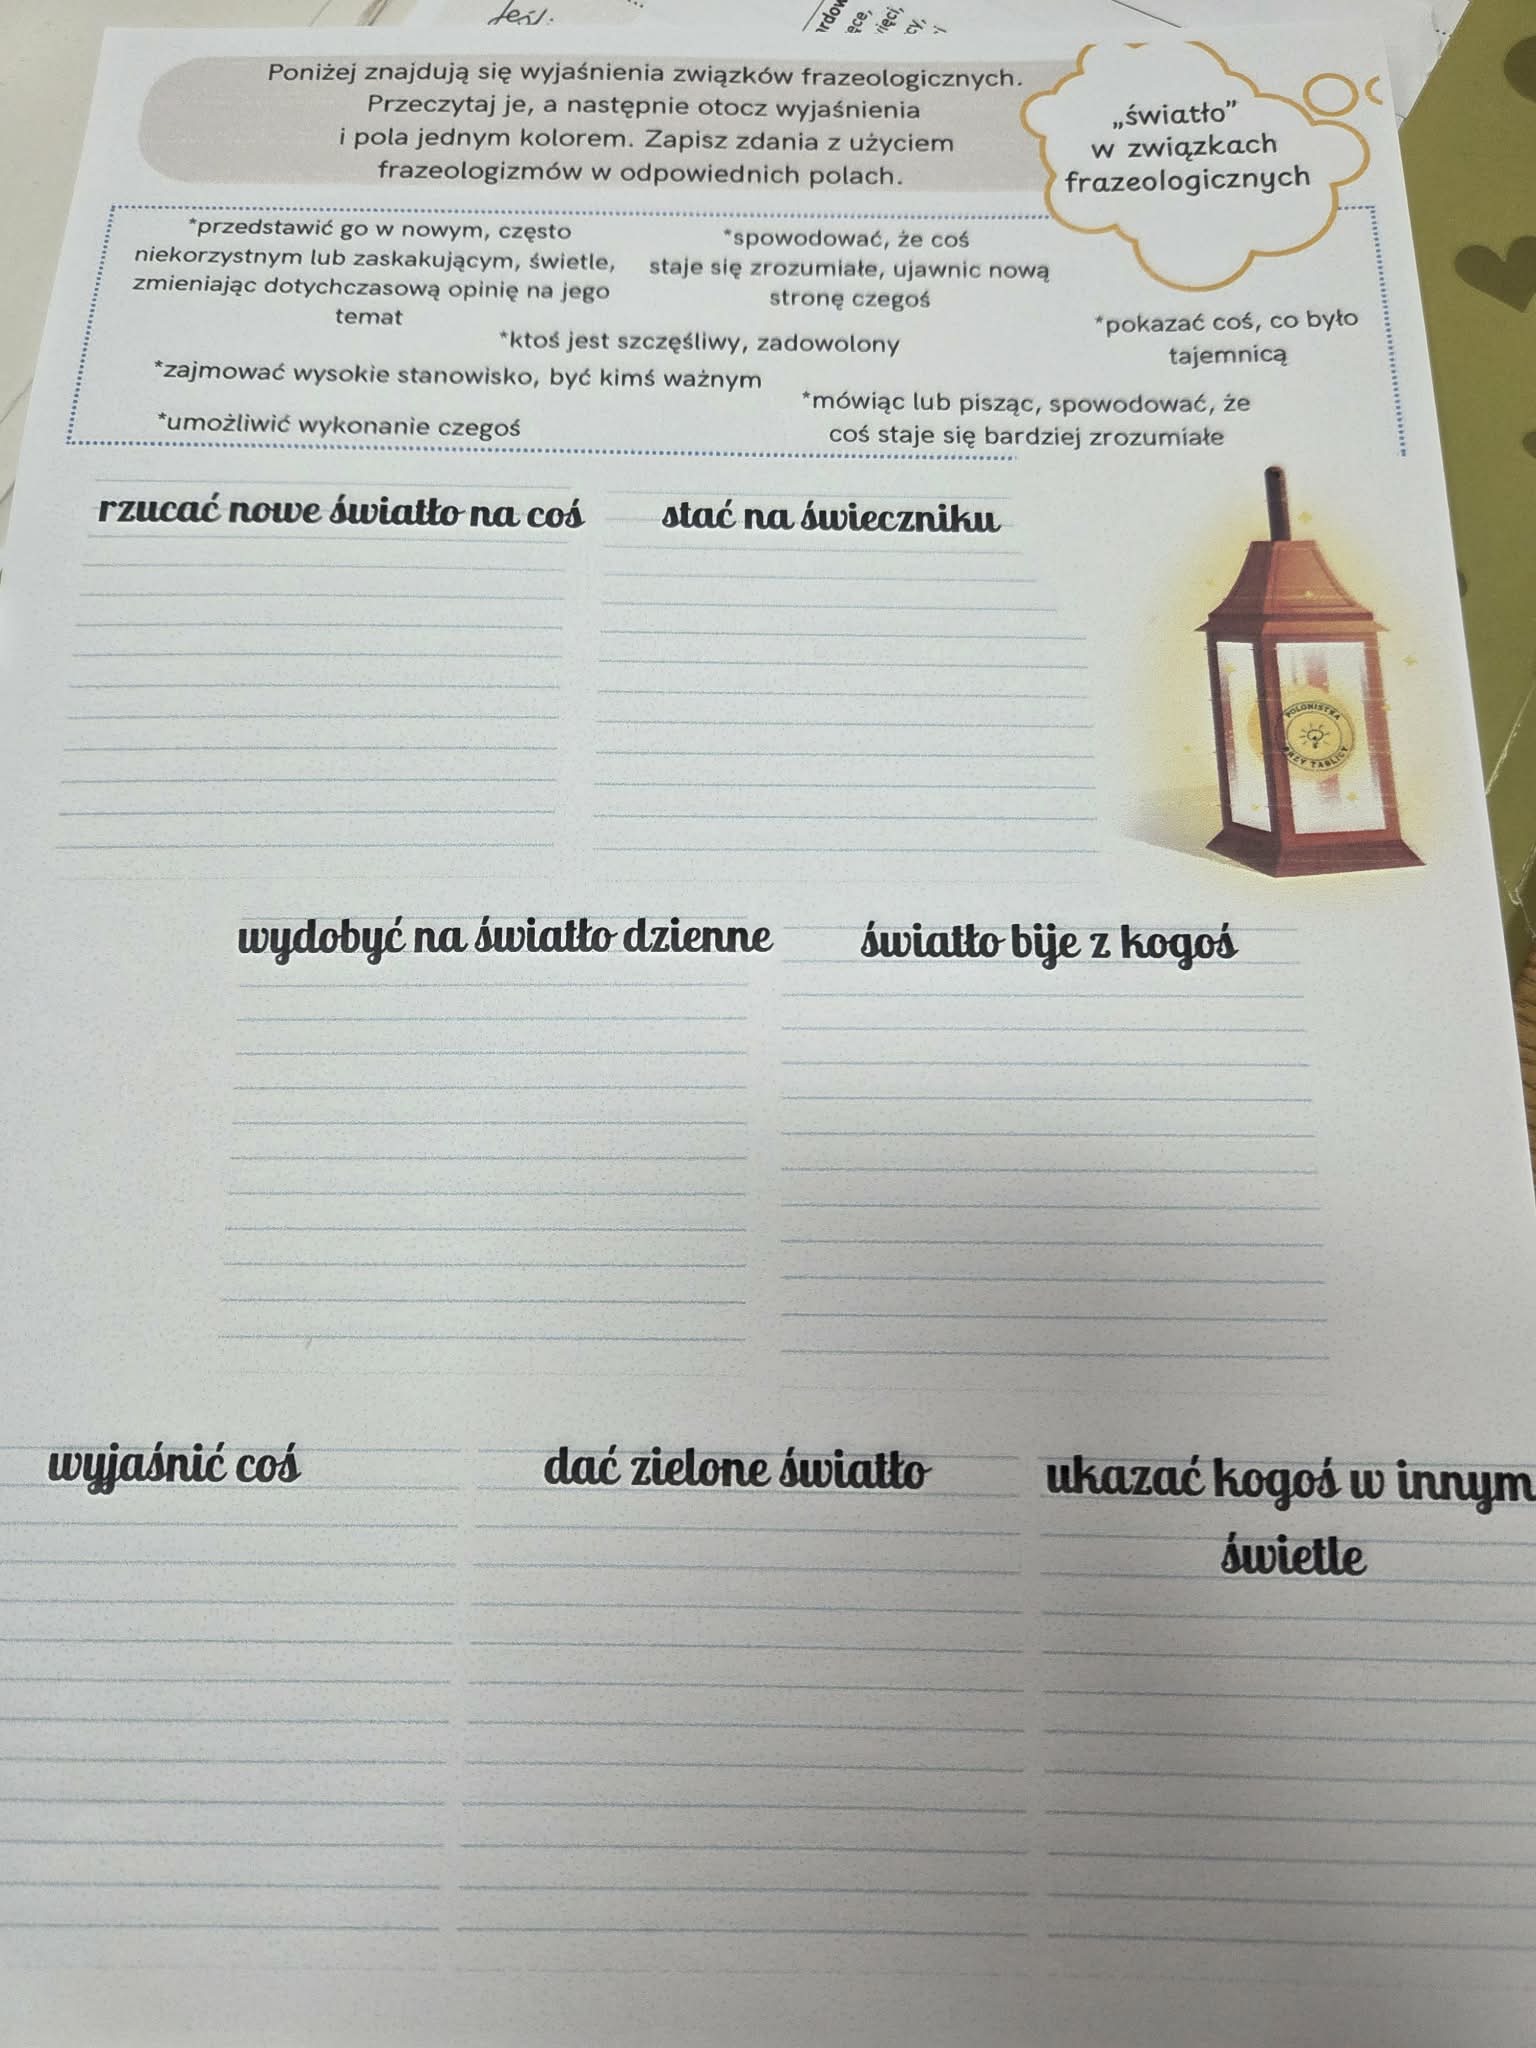 jeśl.
ięce,
ięci,
cy,
Poniżej znajdują się wyjaśnienia związków frazeologicznych.
Przeczytaj je, a następnie otocz wyjaśnienia
i pola jednym kolorem. Zapisz zdania z użyciem
frazeologizmów w odpowiednich polach.
„światło”
w związkach
frazeologicznych
*przedstawić go w nowym, często
niekorzystnym lub zaskakującym, świetle,
zmieniając dotychczasową opinię na jego
temat
*spowodować, że coś
staje się zrozumiałe, ujawnic nową
stronę czegoś
*pokazać coś, co było
tajemnicą
*ktoś jest szczęśliwy, zadowolony
*zajmować wysokie stanowisko, być kimś ważnym
*mówiąc lub pisząc, spowodować, że
coś staje się bardziej zrozumiałe
*umożliwić wykonanie czegoś
rzucać nowe światło na coś
stać na świeczniku
POLONISTKA
PRZY TABLICY
wydobyć na światło dzienne
światło bije z kogoś
wyjaśnić coś
dać zielone światło
ukazać kogoś w innym
świetle